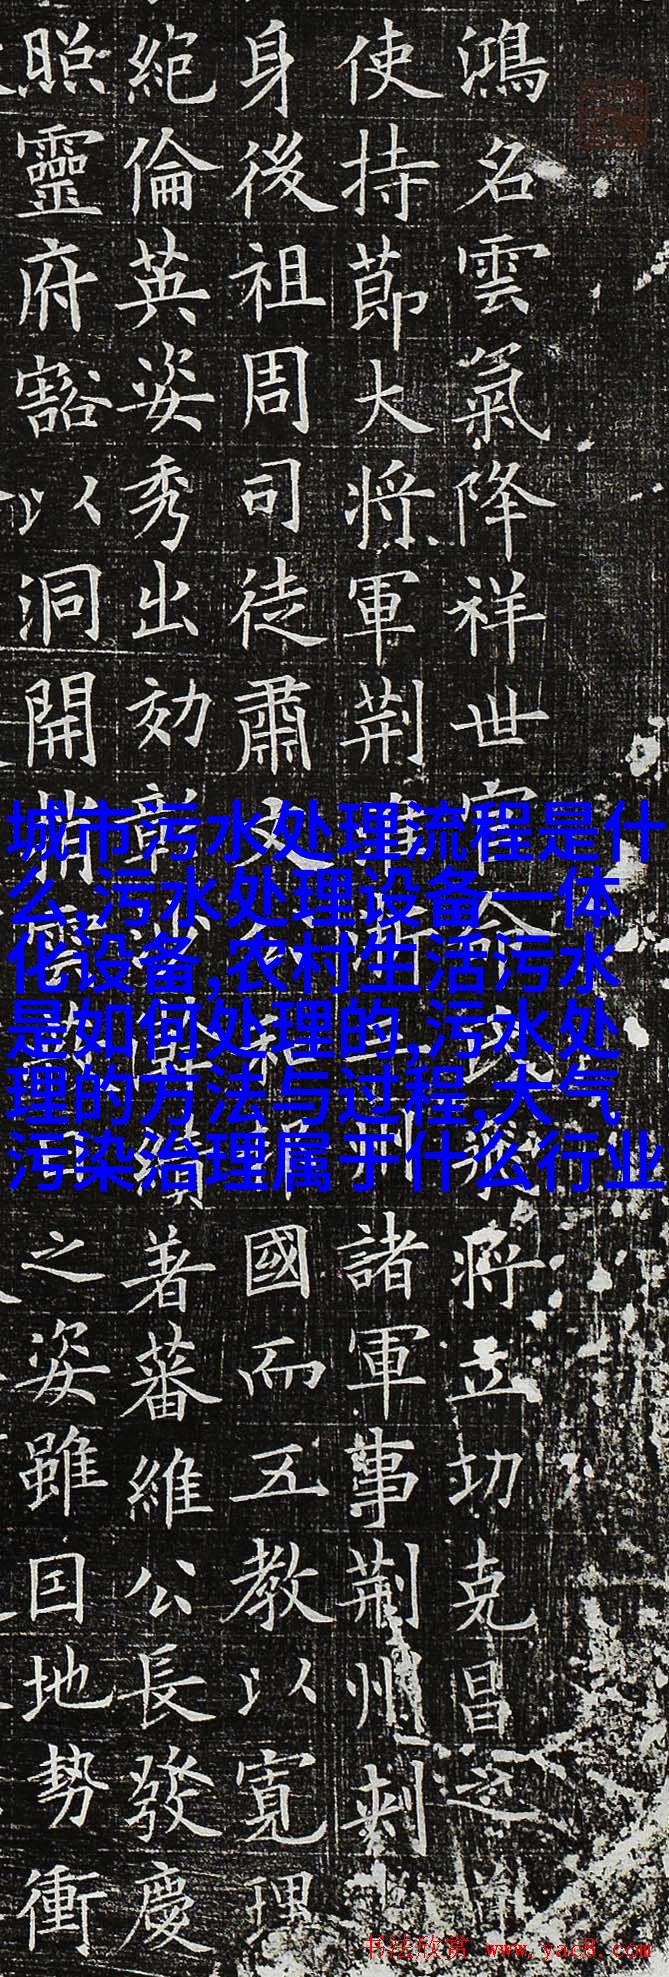 鴻名雲氣降祥世將立功克昌之
使持節大將軍荆諸軍事荆州刺
身後祖周司徒肅國而五教以寬理
絶倫英姿秀出効彰績著蕃維公長發慶
照靈府豁以洞開之姿雖因地勢衝
城市污水处理流程是什
么,污水处理设备一体
化设备,农村生活污水
是如何处理的,污水处
理的方法与过程,大气
污染治理属于什么行业
书法欣赏 www.yac8.com